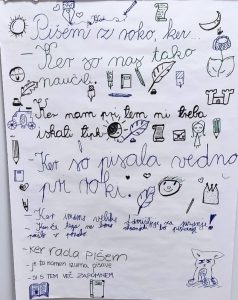 Pišem z roko, ker:
- Ker so nas tako
naučili.
- Ker nam pri tem ni treba
iskati tipk
- Ker so pisala vedno
pri roki.
- Ker imamo veliko
- KER RADA PIŠEM
- je to namen izuma pisave
- SI S TEM VEČ ZAPOMNEM